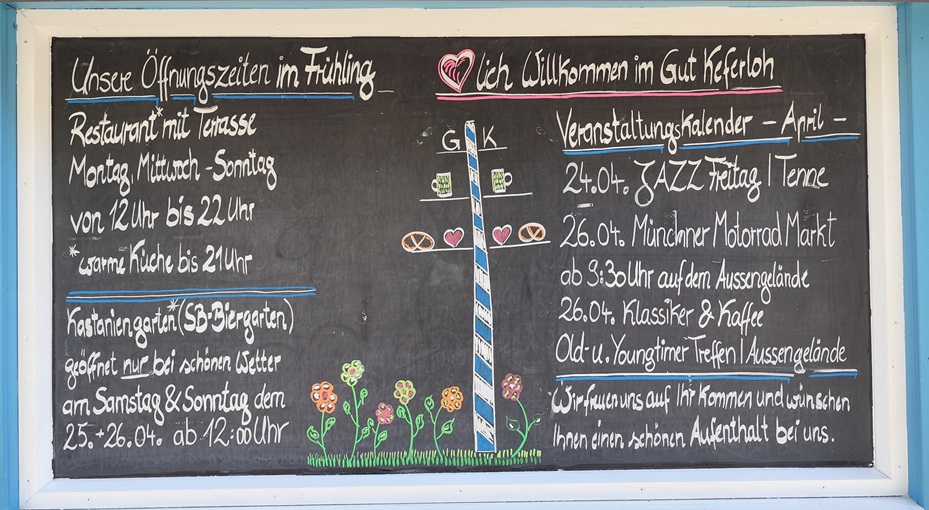 Unsere Öffnungszeiten im Frühling
Restaurant* mit Terrasse
Montag, Mittwoch - Sonntag
von 12 Uhr bis 22 Uhr
*warme Küche bis 21 Uhr
Kastaniengarten* (SB-Biergarten)
geöffnet nur bei schönen Wetter
am Samstag & Sonntag dem
25.+26.04. ab 12:00 Uhr
lich Willkommen im Gut Keferloh
G K
Veranstaltungskalender - April -
24.04. JAZZ Freitag | Tenne
26.04. Münchner Motorrad Markt
ab 9:30 Uhr auf dem Aussengelände
26.04. Klassiker & Kaffee
Old- u. Youngtimer Treffen | Aussengelände
Wir freuen uns auf Ihr Kommen und wünschen
Ihnen einen schönen Aufenthalt bei uns.